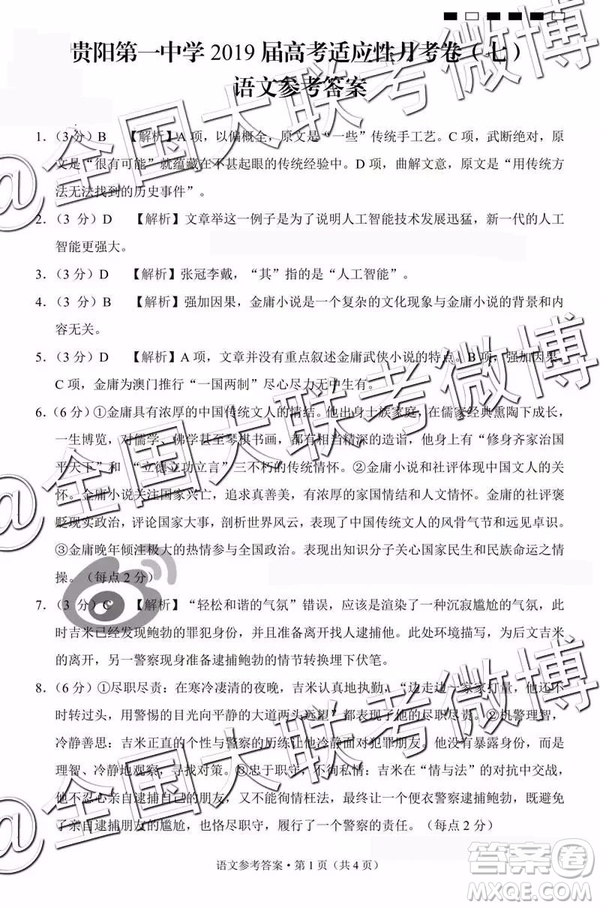 贵阳第一中学 2019 届高考适应性月考卷（七）
语文参考答案
1.（3 分）B 【解析】A 项，以偏概全，原文是“一些”传统手工艺。C 项，武断绝对，原
文是“很有可能”就蕴藏在不起眼的传统经验中。D 项，偷换概念，原文是“用传统方
法无法找到的历史事件”。
2.（3 分）D 【解析】文章举这一例子是为了说明人工智能技术发展迅猛，新一代的人工
智能更强大。
3.（3 分）D 【解析】张冠李戴，“其”指的是“人工智能”。
4.（3 分）B 【解析】强加因果，金庸小说是一个复杂的文化现象与金庸小说的背景和内
容无关。
5.（3 分）D 【解析】A 项，文章中没有重点叙述金庸武侠小说的特点。B
C 项，金庸为澳门推行“一国两制”尽心尽力无中生有。
6.（6 分）①金庸具有浓厚的中国传统文人的情结。他出身士族家庭，在儒家经典熏陶下成长，
一生博览，对儒学、佛学甚至琴棋书画，都有较精深的造诣，他身上有“修身齐家治国
平天下”和“立德立功立言”三不朽的传统情怀。②金庸小说和社评体现中国文人的爱
国情怀。金庸小说扬善惩恶，追求真善美，有浓厚的家国情结和社会良知。金庸的社评褒
贬现实政治，评论国家大事，剖析世界风云，表现了中国传统文人的风骨气节和远见卓识。
③金庸晚年倾注极大的热情参与全国政治。表现出知识分子关心国家民生和民族统一的情
操。（每点 2 分）
7.（3 分）C 【解析】“轻松和谐的气氛”错误，应该是渲染了一种沉寂尴尬的气氛，此
时吉米已经发现鲍勃的罪犯身份，并且因为是朋友不愿意亲自逮捕他。这一句为后文吉米
的离开，另一警察现身准备逮捕鲍勃的情节转换埋下伏笔。
8.（6 分）①尽职尽责：在寒冷凄清的夜晚，吉米认真地执勤“边走边一家家打量，他
不时转过头，用警惕的目光向平静的大道两头巡视”他是一个尽职的警察。②机警理智，
冷静善思：吉米到来时，已经认出对方是自己的朋友也是罪犯。他没有暴露身份，而是
理智、冷静地处理。③忠于职守、不徇私情：吉米在“情与法”的内在抗中交战，
他不忍亲自逮捕自己的朋友，又不徇私情，最终让一个便衣警察逮捕鲍勃，既避免了
亲自逮捕朋友的尴尬，也忠于职守，履行了一个警察的责任。（每点 2 分）
语文参考答案·第 1 页（共 4 页）
@全国大联考微博
@全国大联考微博
@全国大联考微博
答案圈
MXQE.COM